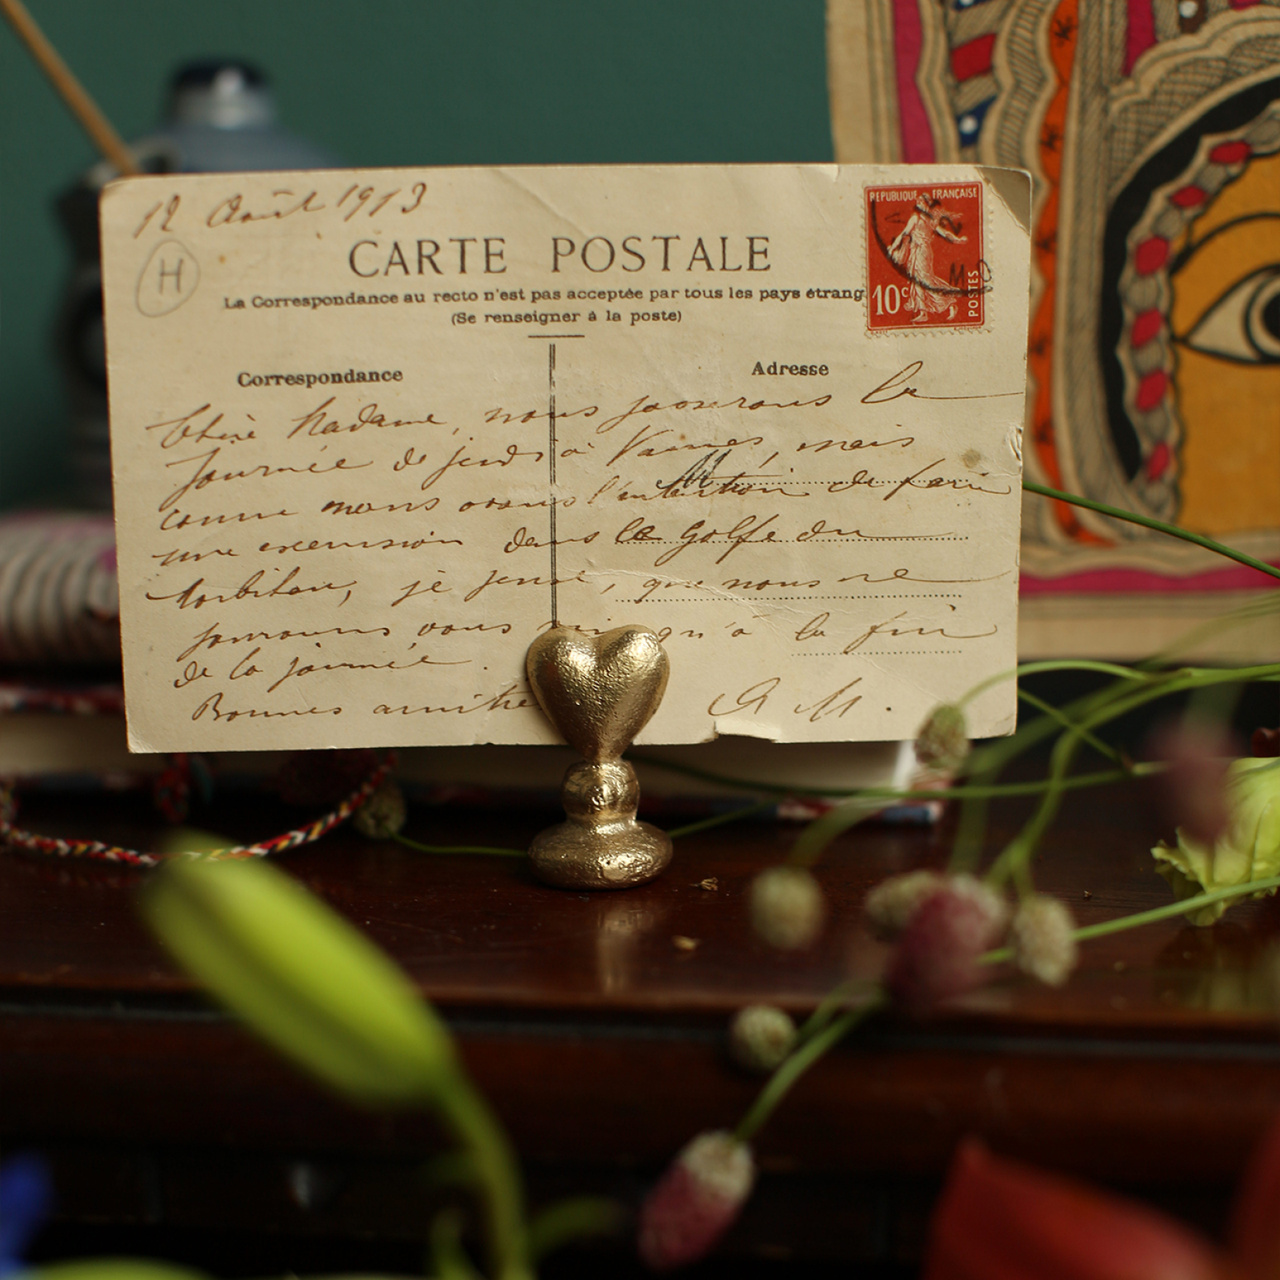 12 Août 1913
H
CARTE POSTALE
La Correspondance au recto n'est pas acceptée par tous les pays étrang
(Se renseigner à la poste)
REPUBLIQUE FRANÇAISE
10c
POSTES
Correspondance
Adresse
Chère Madame, nous passerons la
journée de jeudi à Vannes, mais
comme nous avons l'intention de faire
une excursion dans le golfe du
Morbihan, je pense, que nous ne
pourrons vous qu'à la fin
de la journée.
Bonnes amitié
A M.